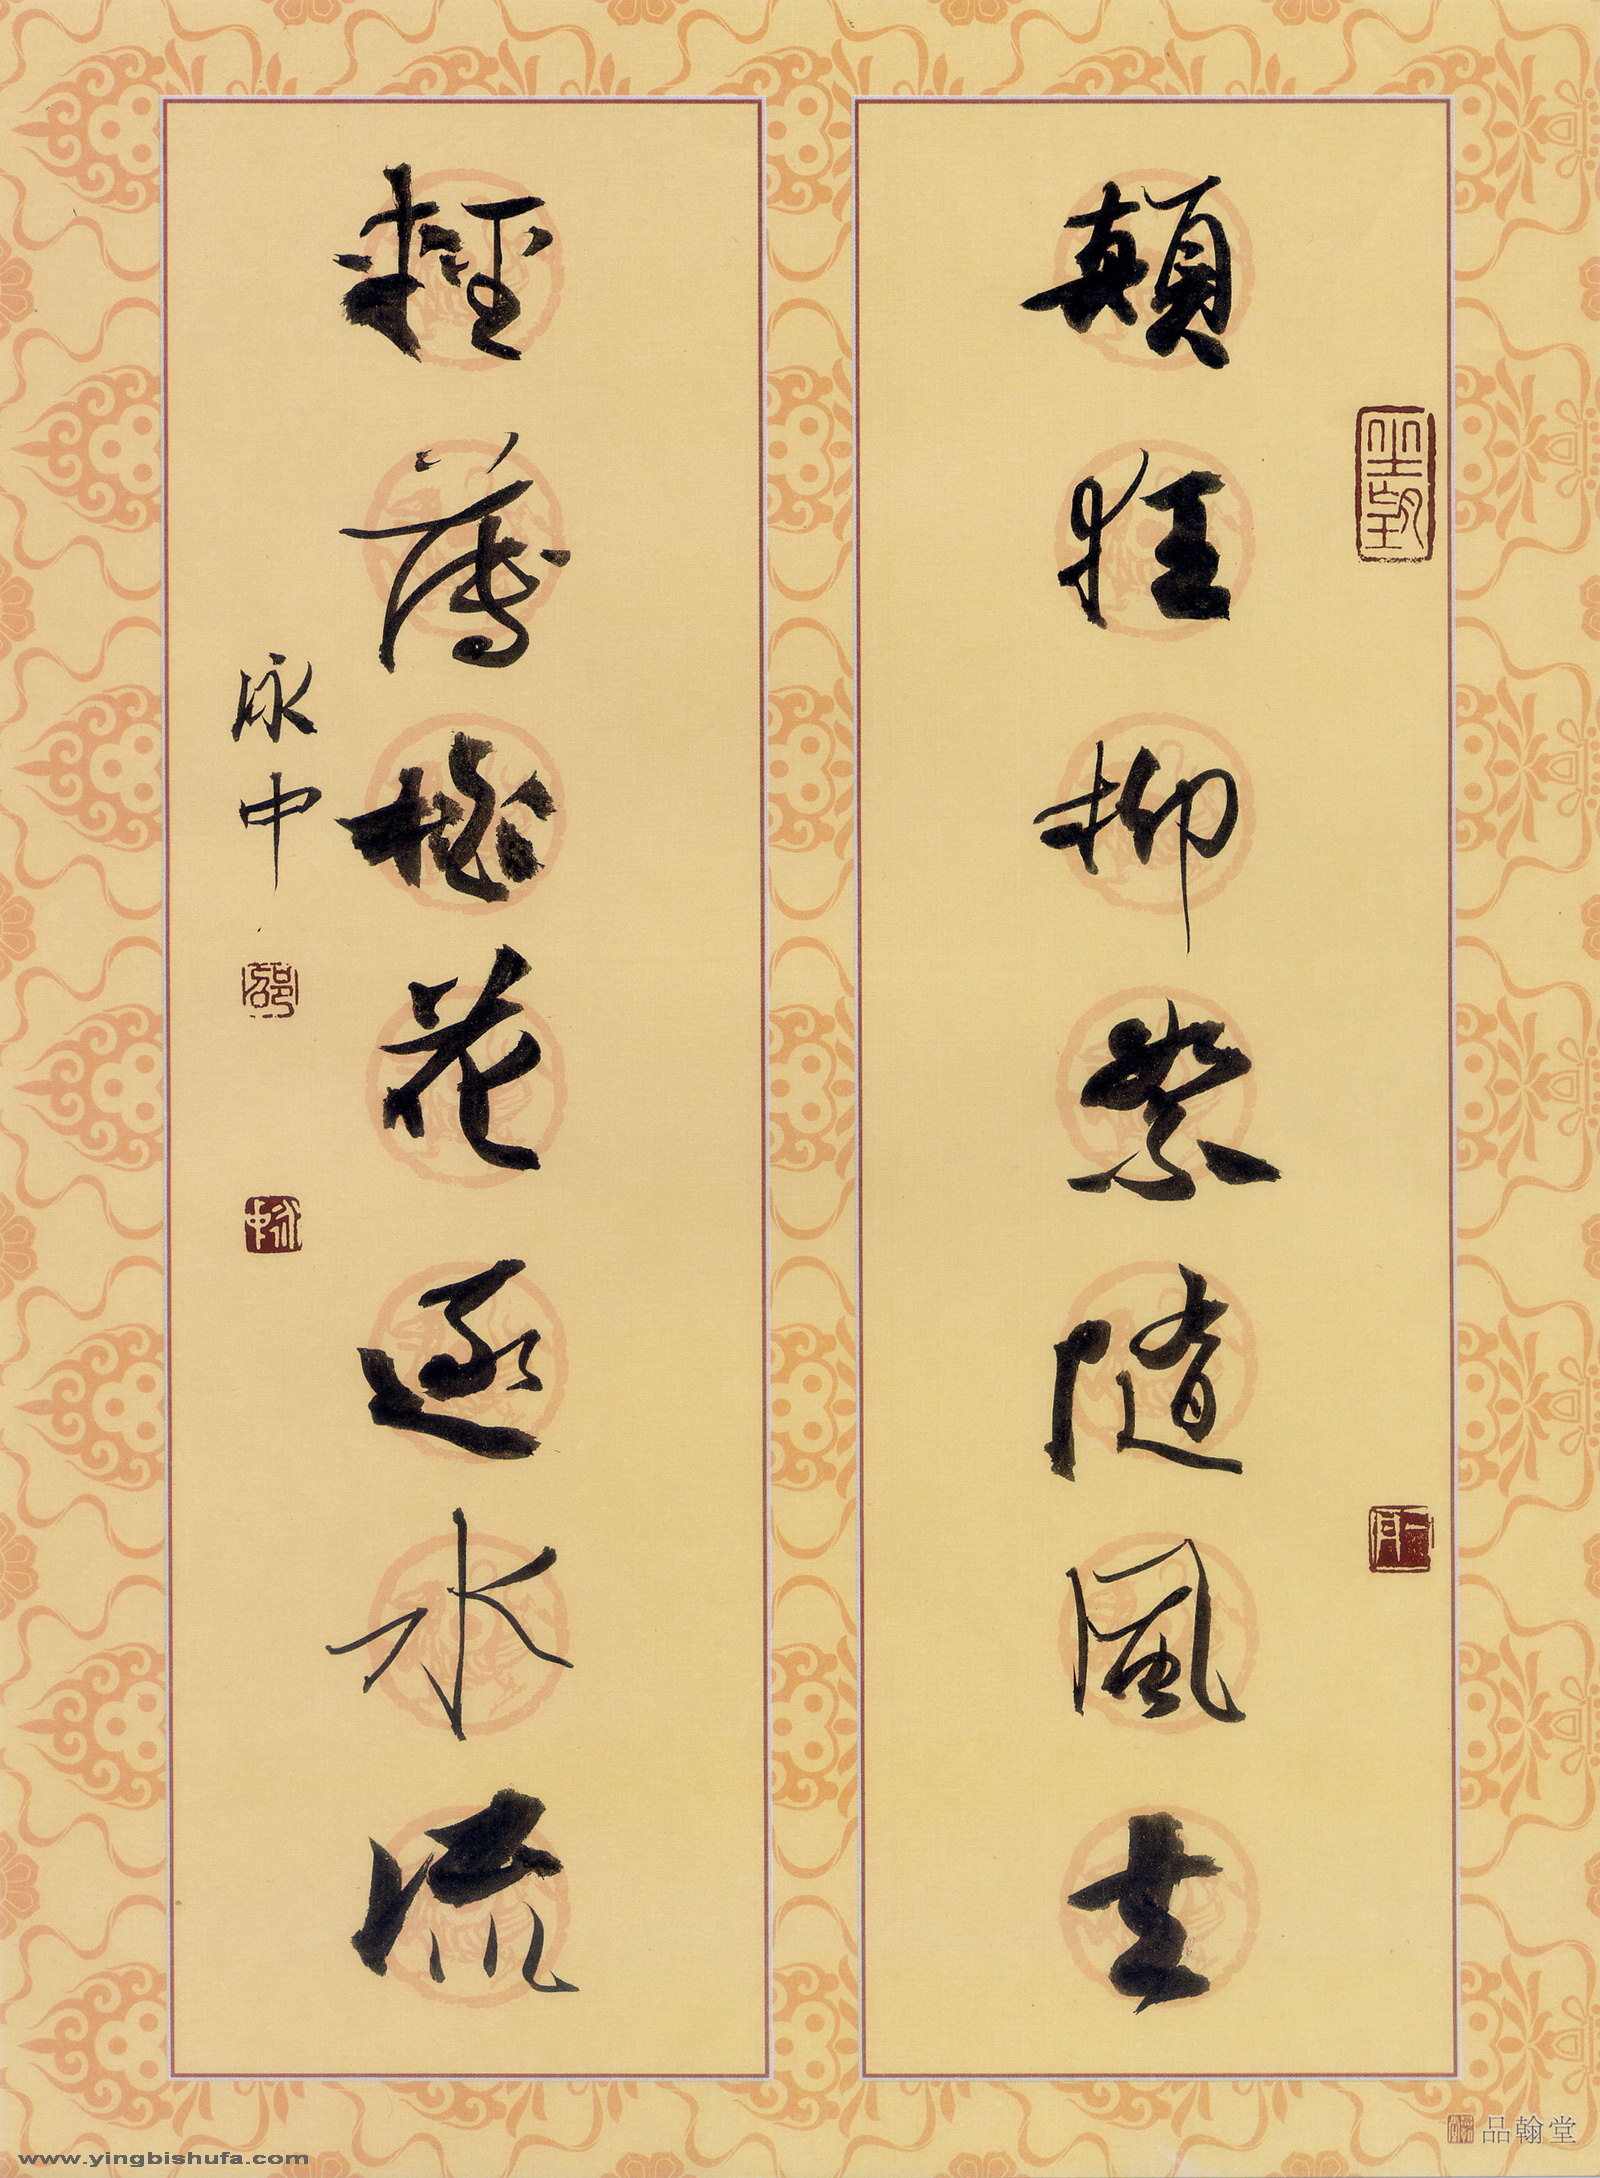 顛狂柳絮隨風去
輕薄桃花逐水流
泳中
邵
泳中
品翰堂
www.yingbishufa.com